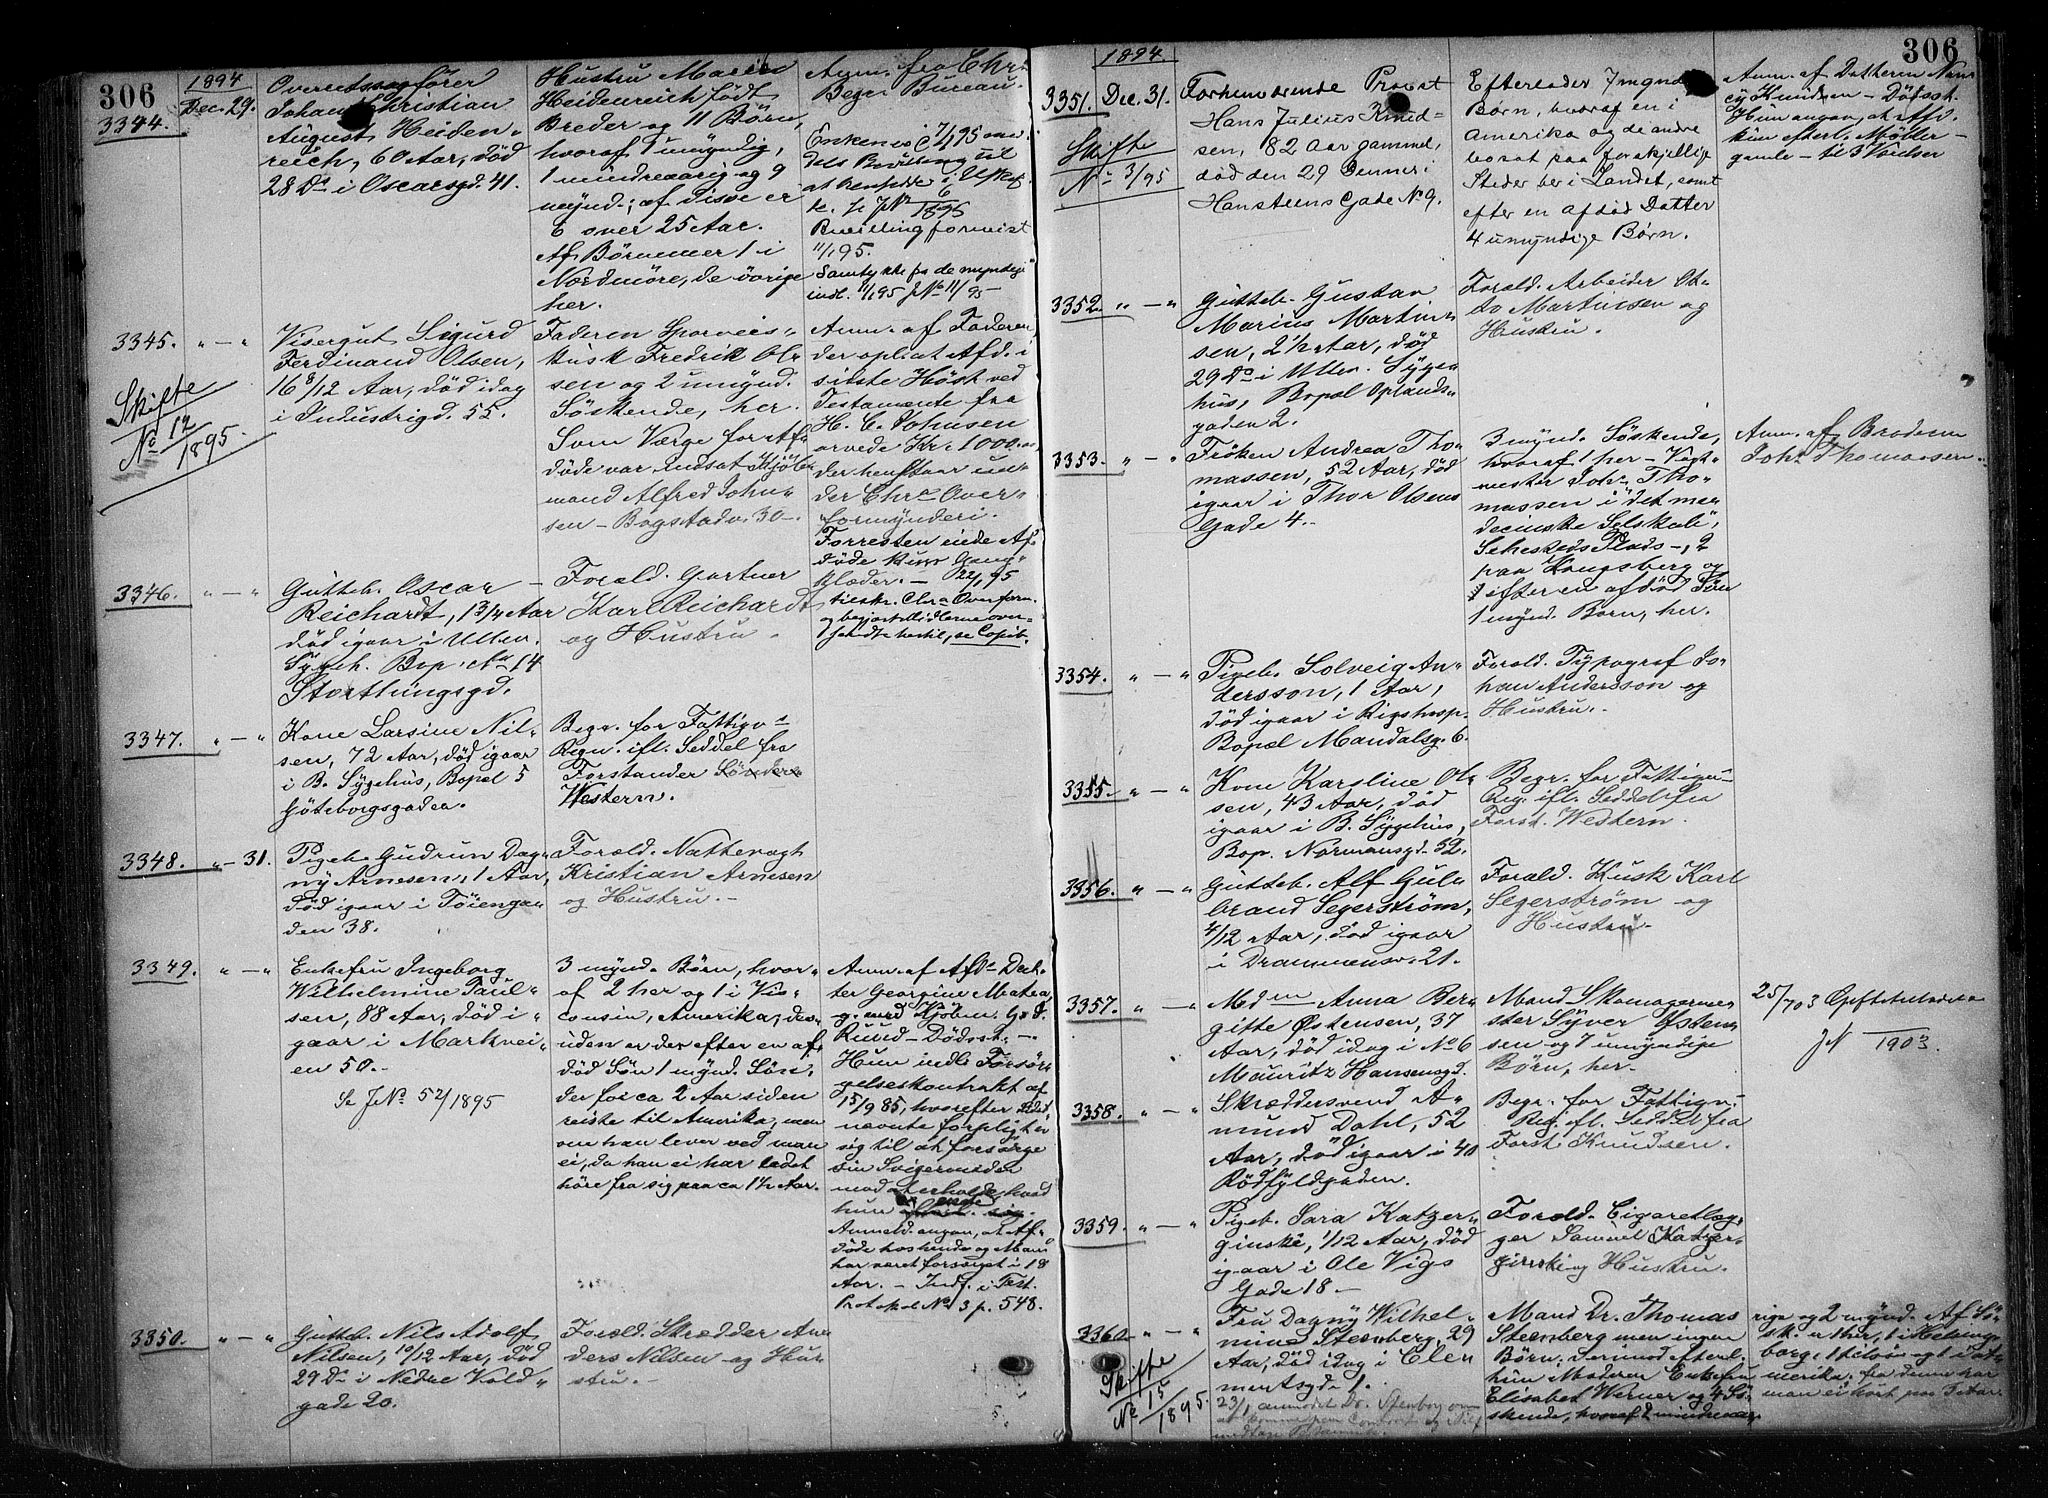 306
1894
3344.
Dec. 29.
Overretssagfører
Johan Christian
August Heiden-
reich, 60 Aar, död
28 Ds i Oscarsgd. 41.
Hustru Maren
Heidenreich født
Breder og 11 Börn,
hvoraf 1 umyndig,
1 mindreaarig og 9
mynd.; af disse er
6 over 25 Aar.
Af Börnene er 1 i
Nordmöre, de övrige
her.
Anm. fra Chr.
Begr. Bureau.
Enken 7/1 95
11/1 95.
Samtykke fra de myndige
indl. 11/1 95 JNo 11/95
3345.
" — "
Skifte
No 12
1895.
Visergut Sigurd
Ferdinand Olsen,
16 8/12 Aar, död idag
i Industrigd. 55.
Faderen Sporveis-
kusk Fredrik Ol-
sen og 2 umynd.
Söskende, her.
Som Værge for Af-
döde var indsat Kjöb-
mand Alfred John-
sen – Bogstadv. 30 –.
Anm. af Faderen
der oplyst Afd. i
sidste Höst ved
Testamente fra
H. C. Johnsen
arvede Kr. 1000.00
der henstaar un-
der Chra Over-
formynderi.
Forresten eiede Af-
döde kun Gang-
klæder. – 22/1 95
tilskr. Chra Overform.
3346.
" — "
Gutteb. Oscar
Reichardt, 1 3/4 Aar
död igaar i Ullev.
Sygeh. Bop. No 14
Storthingsgd.
Foræld. Gartner
Karl Reichardt
og Hustru.
3347.
" — "
Kone Larsine Nil-
sen, 72 Aar, död igaar
i B. Sygehus, Bopel 5
Göteborgsgaden.
Begr. for Fattigv.s
Regn. ifl. Seddel fra
Forstander Söndere
Western.
3348.
" — 31.
Pigeb. Gudrun Dag-
ny Arnesen, 1 Aar,
död igaar i Töienga-
den 38.
Foræld. Nattevagt
Kristian Arnesen
og Hustru. –
3349.
" — "
Enkefru Ingeborg
Wilhelmine Paul-
sen, 88 Aar, död i-
gaar i Markvei-
en 50.
Se JNo 52/1895
3 mynd. Börn, hvor-
af 2 her og 1 i Vis-
consin, Amerika, des-
uden er der efter en af-
död Sön 1 mynd. Sön,
der for ca 2 Aar siden
reiste til Amerika, men
om han lever ved man
ei, da han ei har ladet
höre fra sig paa ca 1 1/2 Aar.
Anm. af Afd.s Dat-
ter Georgine Matea
g. med Kjöbm. G. J.
Ruud – Dödsst. –.
Hun indl. Forsör-
gelseskontrakt af
15/9 85, hvorefter sidst-
nævnte forpligter
sig til at forsörge
sin Svigermoder
mod at erholde hvad
hun
Anmeld. angav, at Af-
döde hos hende og Mand
har været forsörget i 18
Aar. – Indf. i Test.
Protokol No 3 p. 548.
3350.
" — "
Gutteb. Nils Adolf
Nilsen, 10/12 Aar, död
29 Ds i Nedre Vold-
gade 20.
Foræld. Skrædder An-
ders Nilsen og Hu-
stru. –
306
1894.
3351.
Dec. 31.
Skifte
No 3/95
Forhenværende Provst
Hans Julius Knud-
sen, 82 Aar gammel,
död den 29 Dennes i
Hansteens Gade No 9.
Efterlader 7 mynd.
Börn, hvoraf en i
Amerika og de andre
bosat paa forskjellige
Steder her i Landet, samt
efter en afdöd Datter
4 umyndige Börn.
Anm. af Datteren Nan-
cy Knudsen – Dödsst.
Hun angav, at Afd.
kun efterl. Möbler –
gamle –
3352.
" — "
Gutteb. Gustav
Marius Martin-
sen, 2 1/2 Aar, död
29 Ds i Ullev. Syge-
hus, Bopæl Oplands-
gaden 2.
Foræld. Arbeider Ot-
to Martinsen og
Hustru.
3353.
" — "
Fröken Andrea Tho-
massen, 52 Aar, död
igaar i Thor Olsens
Gade 4.
3 mynd. Söskende,
hvoraf 1 her – Vagt-
mester Joh. Tho-
massen i "det me-
decinske Selskab",
Sehesteds Plads –, 2
paa Kongsberg og
efter en afdöd Sön
1 mynd. Barn, her.
Anm. af Broderen
Joh. Thomassen.
3354.
" — "
Pigeb. Solveig An-
dersson, 1 Aar,
död igaar i Rigshosp.
Bopæl Mandalsg. 6.
Foræld. Typograf Jo-
han Andersson og
Hustru.
3355.
" — "
Kone Karoline Ol-
sen, 43 Aar, död
igaar i B. Sygehus,
Bop. Normansgd. 52.
Begr. for Fattigv.-
Reg. ifl. Seddel fra
Forsd. Western.
3356.
" — "
Gutteb. Alf Gul-
brand Segerström,
4/12 Aar, död igaar
i Drammensv. 21.
Foræld. Kusk Karl
Segerström og
Hustru.
3357.
" — "
Mdmm Anna Ber-
gitte Østensen, 37
Aar, död idag i No 6
Mauritz Hansensgd.
Mand Skomagerme-
ster Syver Østen-
sen og 7 umyndige
Börn, her.
25/7 03
JN 1903.
3358.
" — "
Skræddersvend A-
mund Dahl, 52
Aar, död igaar i 40
Rödfyldgaden.
Begr. for Fattigv.-
Reg. ifl. Seddel fra
Forst. Knudsen.
3359.
" — "
Pigeb. Sara Katzer-
ginski, 1/12 Aar, död
igaar i Ole Vigs
Gade 18 –
Foræld. Cigaretlæg-
ger Samuel Katzer-
ginski og Hustru.
3360
" — "
Skifte
No 15
1895.
Fru Dagny Wilhel-
mine Steenberg, 29
Aar, död idag i Cle-
mentsgd. 1.
23/1 anmodet Dr. Stenberg om
Mand Dr. Thomas
Steenberg men ingen
Börn; derimod efterl.
hun Moderen Enkefru
Elisabet Werner og 4 Sö-
skende, hvoraf 2 mindreaa-
rige og 2 mynd. Af Sö-
sk. er 1 her, 1 i Helsing-
borg, 1 tilsös og 1 i A-
merika; fra denne har
man ei hört paa